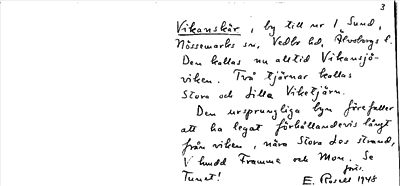 3
Vikanskär, by till nr 1 Sund,
Nössemarks sn, Vedbo hd, Älvsborgs l.
Den kallas nu alltid Vikansjö-
viken. Två tjärnar kallas
Stora och Lilla Viketjärn.
Den ursprungliga byn förefaller
att ha legat förhållandevis långt
från viken, nära Stora Les strand,
V hudd Framme och Mon. Se
Tunet!
E. Rosell 1948